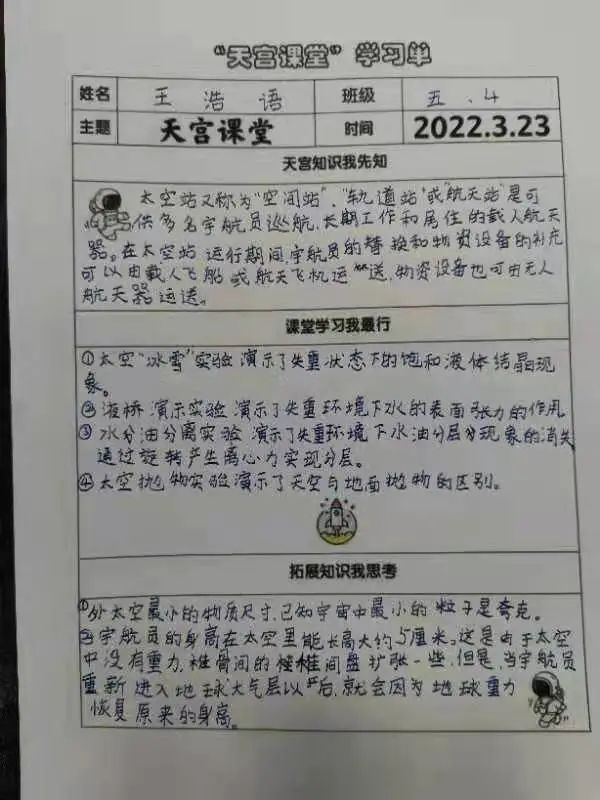 “天宫课堂”学习单
姓名 王浩语 班级 五.4
主题 天宫课堂 时间 2022.3.23
天宫知识我先知
太空站又称为“空间站”、“轨道站”或“航天站”是可
供多名宇航员巡航、长期工作和居住的载人航天
器。在太空站运行期间,宇航员的替换和物资设备的补充
可以由载人飞船或航天飞机运送,物资设备也可由无人
航天器运送。
课堂学习我最行
①太空“冰雪”实验演示了失重状态下的饱和液体结晶现
象。
②液桥演示实验演示了失重环境下水的表面张力的作用
③水分油分离实验演示了失重环境下水油分层分现象的消失
通过旋转产生离心力实现分层。
④太空抛物实验演示了天空与地面抛物的区别。
拓展知识我思考
①外太空最小的物质尺寸,已知宇宙中最小的粒子是夸克。
②宇航员的身高在太空里能长高大约5厘米。这是由于太空
中没有重力,椎骨间的椎间盘扩张一些,但是,当宇航员
重新进入地球大气层以后,就会因为地球重力
恢复原来的身高。